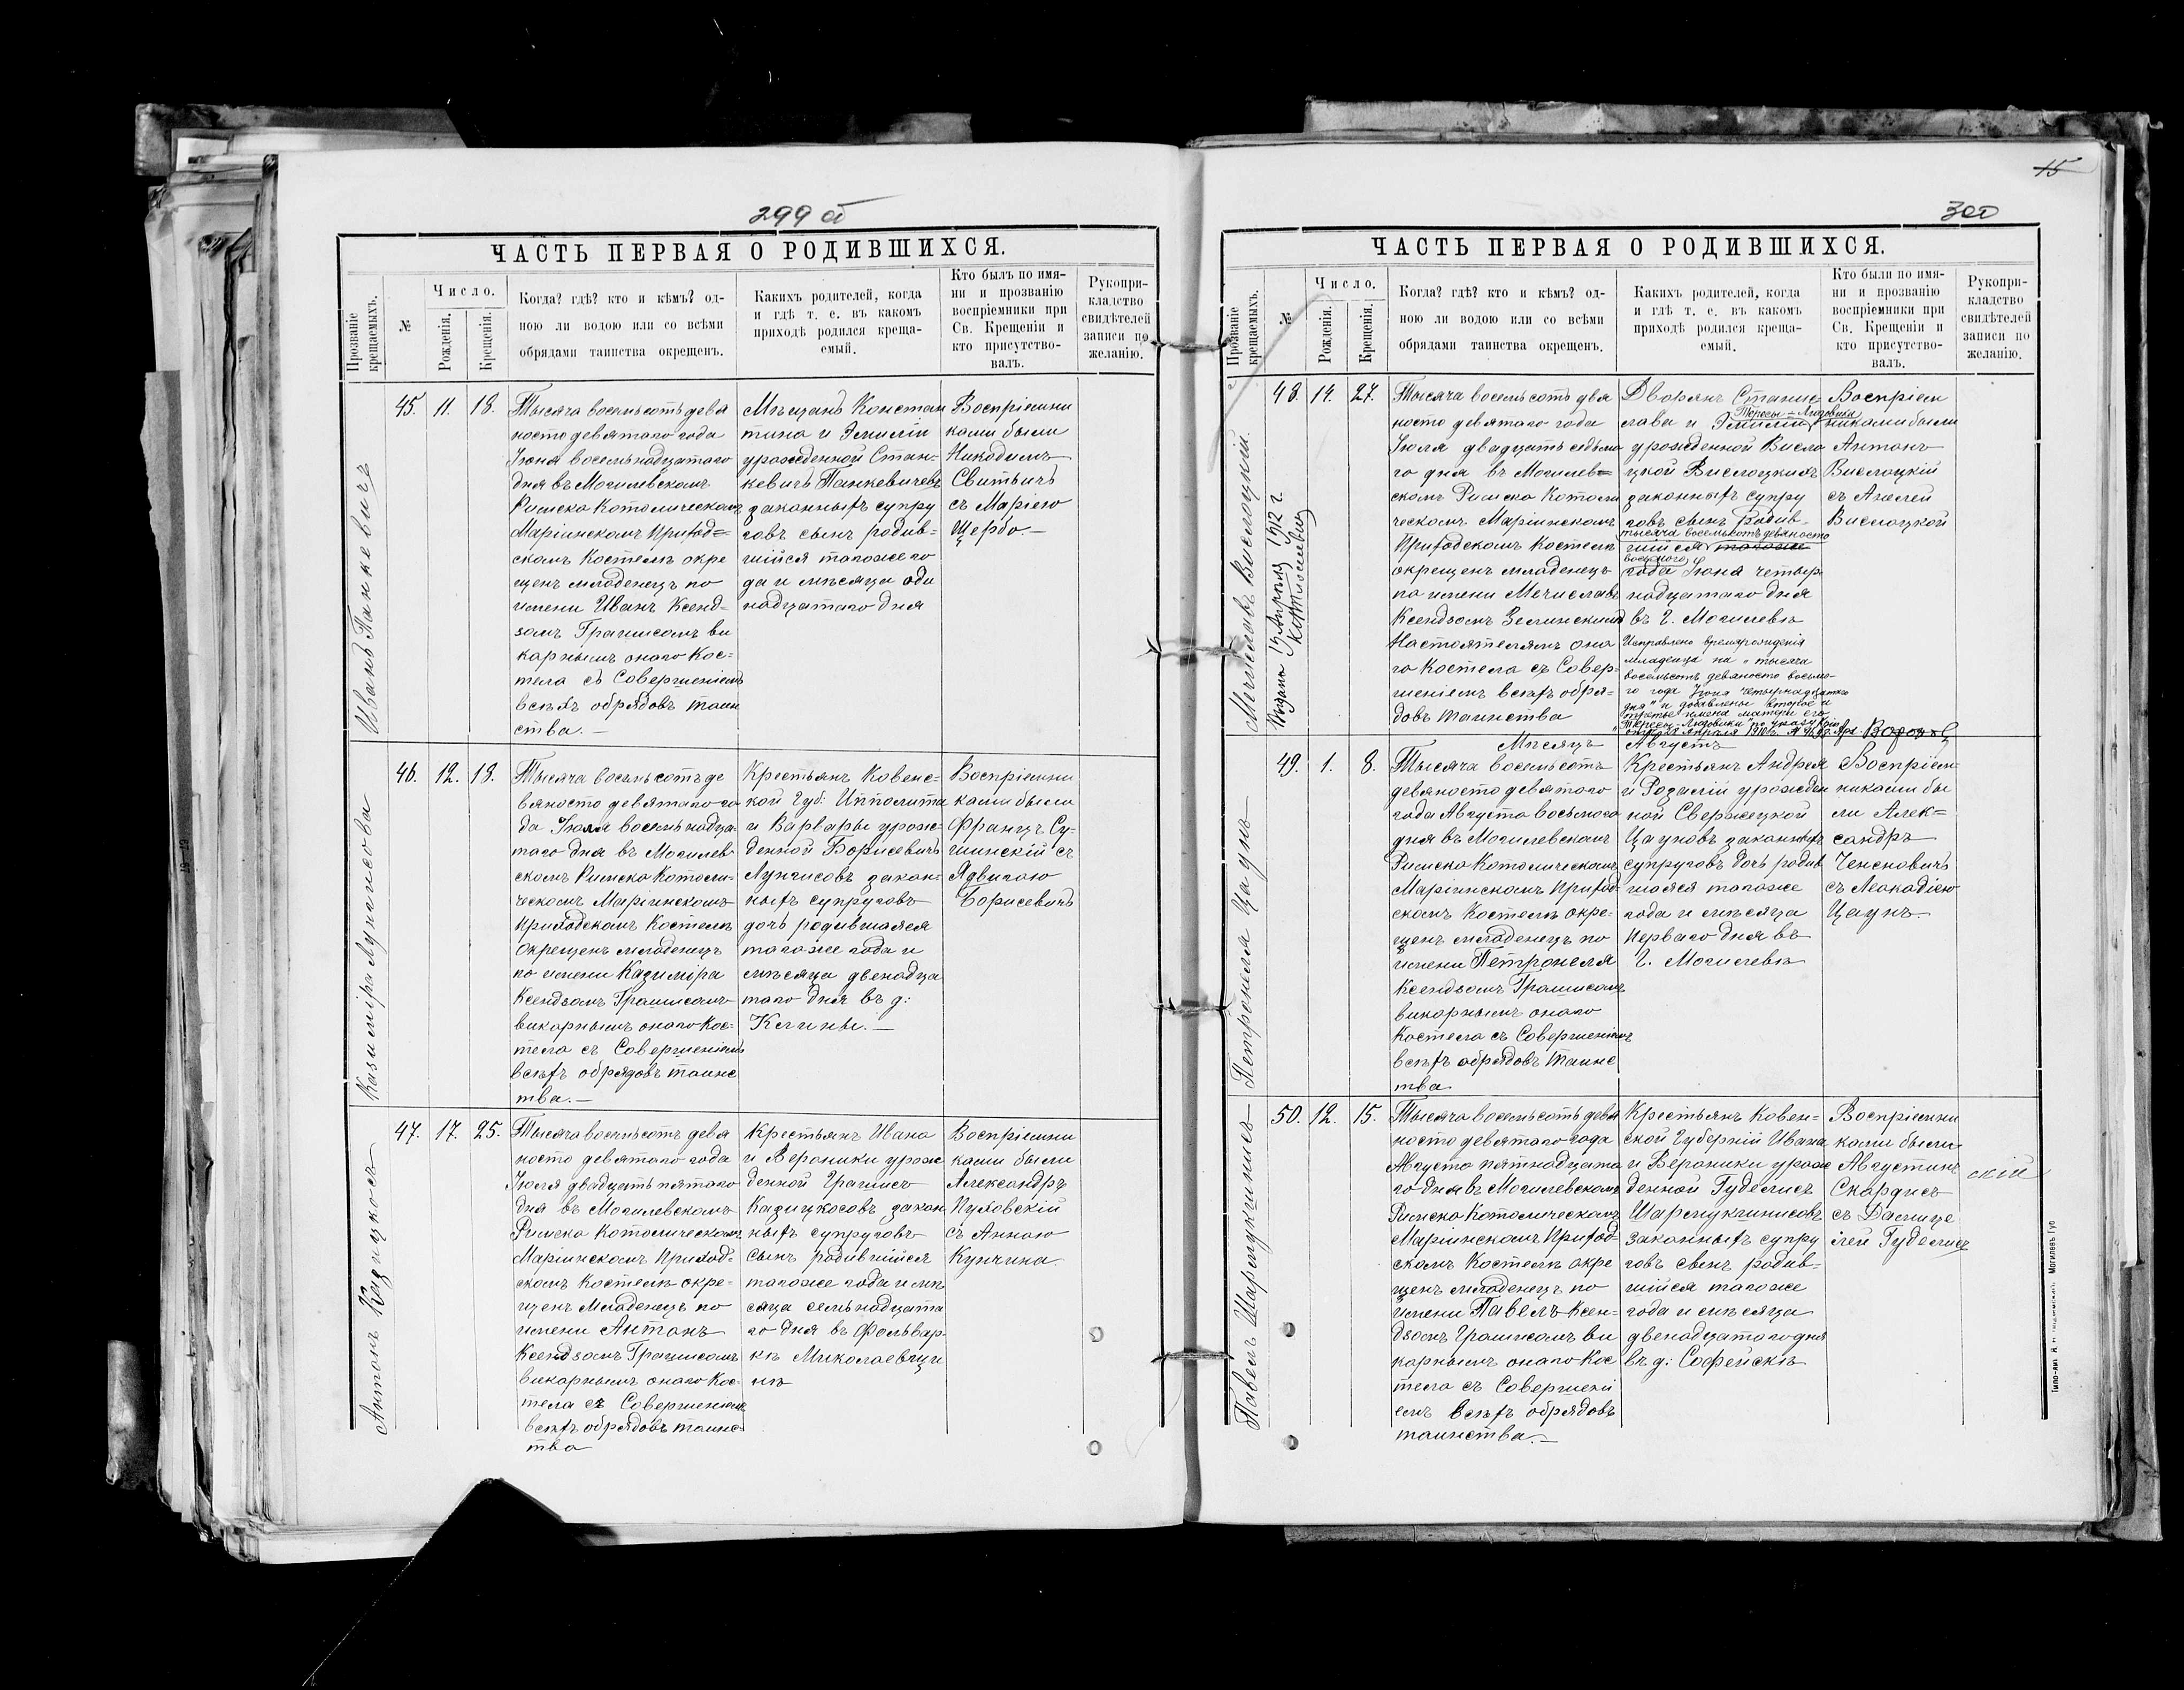 299 а
ЧАСТЬ ПЕРВАЯ О РОДИВШИХСЯ.
Прозваніе
крещаемыхъ.
№
Число.
Рожденія.
Крещенія.
Когда? гдѣ? кто и кѣмъ? од-
ною ли водою или со всѣми
обрядами таинства окрещенъ.
Какихъ родителей, когда
и гдѣ т. е. въ какомъ
приходѣ родился креща-
емый.
Кто былъ по имя-
ни и прозванію
воспріемники при
Св. Крещеніи и
кто присутство-
валъ.
Рукопри-
кладство
свидѣтелей
записи по
желанію.
Иванъ Панкевичъ
45. 11. 18.
Тысяча восемьсотъ девя
носто девятаго года
Іюня восемьнадцатаго
дня въ Могилевскомъ
Римско Католическомъ
Маріинскомъ Приход=
скомъ Костелѣ окре
щенъ младенецъ по
имени Иванъ Ксенд-
зомъ Грашисомъ ви
карнымъ онаго Кос=
тела съ Совершеніемъ
всѣхъ обрядовъ таин
ства. —
Мѣщанъ Констан
тина и Эмиліи
урожденной Стан-
кевичъ Панкевичевъ
законныхъ супру
говъ сынъ родив-
шійся тогоже го
да и мѣсяца оди
надцатаго дня
Воспріемни
ками были
Никодимъ
Свитычъ
съ Маріею
Щербо. —
Казиміра Лунгисова
46. 12. 18.
Тысяча восемьсотъ де
вяносто девятаго го
да Іюля восемьнадца
таго дня въ Могилев
скомъ Римско Католи-
ческомъ Маріинскомъ
Приходскомъ Костелѣ
окрещенъ младенецъ
по имени Казиміра
Ксендзомъ Грашисомъ
викарнымъ онаго Кос=
тела съ Совершеніемъ
всѣхъ обрядовъ таинс
тва. —
Крестьянъ Ковенс-
кой Губ: Ипполита
и Варвары урож-
денной Борисевичъ
Лунгисовъ закон-
ныхъ супруговъ
дочь родившаяся
тогоже года и
мѣсяца двенадца
таго дня въ д:
Воспріемни
ками были
Францъ Су-
шинскій съ
Ядвигою
Борисевичъ
Антонъ Кадицкосъ
47. 17. 25.
Тысяча восемьсотъ девя
носто девятаго года
Іюля двадцать пятаго
дня въ Могилевскомъ
Римско Католическомъ
Маріинскомъ Приход-
скомъ Костелѣ окре-
щенъ Младенецъ по
имени Антонъ
Ксендзомъ Грашисомъ
викарнымъ онаго Кос-
тела съ Совершеніемъ
всѣхъ обрядовъ таинс-
тва
Крестьянъ Ивана
и Вероники урож
денной Грашисъ
Кадицкосовъ закон
ныхъ супруговъ
сынъ родившійся
тогоже года и мѣ
сяца семьнадцата
го дня въ Фольвар-
кѣ Миколаевщи
нѣ
Воспріемни
ками были
Александръ
Пуховскій
съ Анною
15
300
ЧАСТЬ ПЕРВАЯ О РОДИВШИХСЯ.
Прозваніе
крещаемыхъ.
№
Число.
Рожденія.
Крещенія.
Когда? гдѣ? кто и кѣмъ? од-
ною ли водою или со всѣми
обрядами таинства окрещенъ.
Какихъ родителей, когда
и гдѣ т. е. въ какомъ
приходѣ родился креща-
емый.
Кто были по имя-
ни и прозванію
воспріемники при
Св. Крещеніи и
кто присутство-
валъ.
Рукопри-
кладство
свидѣтелей
записи по
желанію.
Мечиславъ Вислоцкій.
Апрѣля 1912 г.
48. 14. 27.
Тысяча восемьсотъ девя
носто девятаго года
Іюля двадцать седьма
го дня въ Могилев=
скомъ Римско Католи
ческомъ Маріинскомъ
Приходскомъ Костелѣ
окрещенъ младенецъ
по имени Мечиславъ
Ксендзомъ Зелинскимъ
Настоятелемъ она
го Костела съ Совер-
шеніемъ всѣхъ обря-
довъ таинства
Дворянъ Станис
Тересы-Людовики
лава и Эмиліи
урожденной Висло
цкой Вислоцкихъ
законныхъ супру
говъ сынъ родив-
тысяча восемьсотъ девяносто
шійся тогоже
восьмого
года Іюня четыр
надцатаго дня
въ г. Могилевѣ
Исправлено время рожденія
младенца на „тысяча
восемьсотъ девяносто восьмо-
го года Іюня четырнадцатаго
дня" и добавлены второе и
третье имена матери его
„Тересы-Людовики" по указу
Воспріем
никами были
Антонъ
Вислоцкій
съ Анелей
Вислоцкой
Мѣсяцъ Августъ
Петронеля Цаунъ
49. 1. 8.
Тысяча восемьсотъ
девяносто девятаго
года Августа восьмого
дня въ Могилевскомъ
Римско Католическомъ
Маріинскомъ Приход-
скомъ Костелѣ окре-
щенъ младенецъ по
имени Петронеля
Ксендзомъ Грашисомъ
викарнымъ онаго
Костела съ Совершеніемъ
всѣхъ обрядовъ таинс
тва
Крестьянъ Андрея
и Розаліи урожден
ной Свержецкой
Цауновъ законныхъ
супруговъ дочь родив
шаяся тогоже
года и мѣсяца
перваго дня въ
г. Могилевѣ
Воспріем-
никами бы
ли Алек=
сандръ
Ченсновичъ
съ Леокадіею
Цаунъ
Павелъ Шармукшнисъ
50. 12. 15.
Тысяча восемьсотъ девя
носто девятаго года
Августа пятнадцата
го дня въ Могилевскомъ
Римско Католическомъ
Маріинскомъ Приход-
скомъ Костелѣ окре
щенъ младенецъ по
имени Павелъ Ксен-
дзомъ Грашисомъ ви
карнымъ онаго Кос
тела съ Совершені
емъ всѣхъ обрядовъ
таинства. —
Крестьянъ Ковен=
ской Губерніи Ивана
и Вероники урож
денной Гуделисъ
Шармукшнисовъ
законныхъ супру
говъ сынъ родив-
шійся тогоже
года и мѣсяца
двенадцатаго дня
въ д: Софейскѣ
Воспріемни
ками были
Августинъ
Скардисъ
съ
Гуделисъ
скій